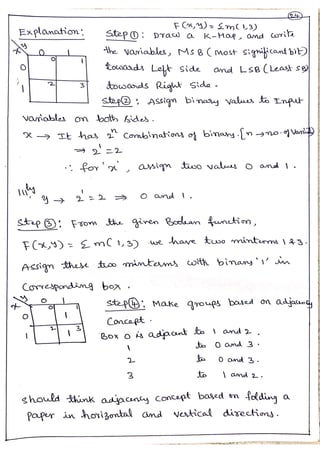 24
F(x,y) = Σm(1,3)
Explanation:
Step ①: Draw a K-Map, and write
the variables, MSB (Most Significant bit)
towards Left Side and LSB (Least SB)
towards Right Side.
x y 0 1
0 0 1
1 2 3
Step ②: Assign binary values to Input
variables on both sides.
x → It has 2ⁿ Combinations of binary. [n → no. of
⇒ 2¹ = 2
∴ for 'x', assign two values 0 and 1.
|||ly y → 2¹ = 2 ⇒ 0 and 1.
Step ③: From the given Boolean function,
F(x,y) = Σm(1,3) we have two minterms 1 & 3.
Assign these two minterms with binary '1' in
Corresponding box.
x y 0 1
0 0 1 1
1 2 3 1
Step ④: Make groups based on adjacency
Concept.
Box 0 is adjacent to 1 and 2.
1 to 0 and 3.
2 to 0 and 3.
3 to 1 and 2.
Should think adjacency concept based on folding a
paper in horizontal and vertical directions.